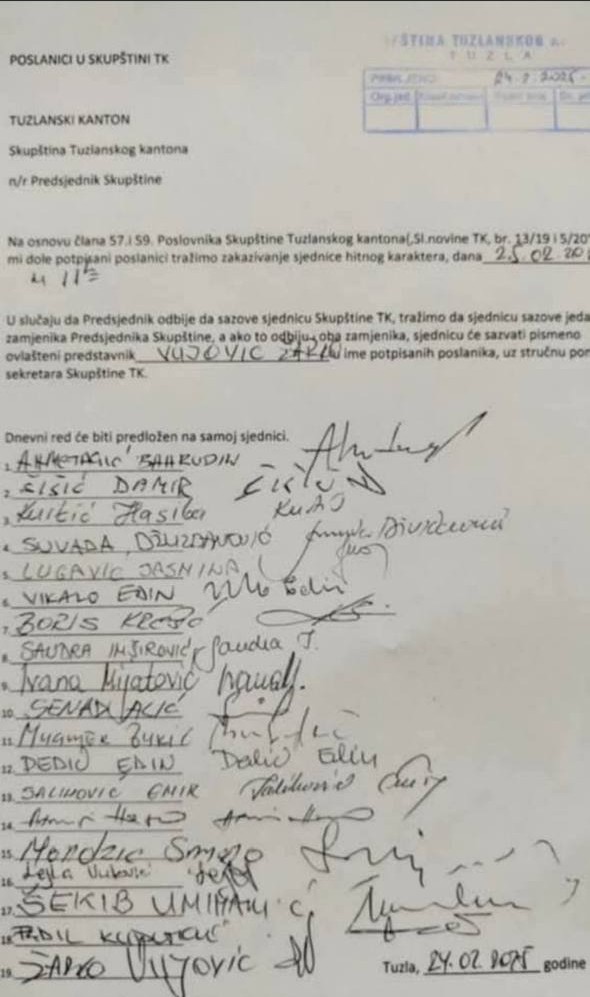 POSLANICI U SKUPŠTINI TK
TUZLANSKOG
TUZLA
24.2.2025
TUZLANSKI KANTON
Skupština Tuzlanskog kantona
n/r Predsjednik Skupštine
Na osnovu člana 57.i 59. Poslovnika Skupštine Tuzlanskog kantona(„Sl.novine TK, br. 13/19 i 5/20
mi dole potpisani poslanici tražimo zakazivanje sjednice hitnog karaktera, dana 25.02.20
U slučaju da Predsjednik odbije da sazove sjednicu Skupštine TK, tražimo da sjednicu sazove
zamjenika Predsjednika Skupštine, a ako to odbiju oba zamjenika, sjednicu će sazvati pismeno
ovlašteni predstavnik VUJOVIĆ u ime potpisanih poslanika, uz stručnu
sekretara Skupštine TK.
Dnevni red će biti predložen na samoj sjednici.
1. AHMETAGIĆ BAHRUDIN
2. ČIŠIĆ DAMIR
3. Hasiba
4. SUVADA
5. LUGAVIĆ JASMINA
6. VIKALO EDIN
7. BORIS KREŠIĆ
8. SANDRA IMŠIROVIĆ Sandra I.
9. Ivana Mijatović
10. SENAD ALIĆ
11.
12. DEDIĆ EDIN Dedić Edin
13. SALIHOVIĆ EMIR
14.
15.
16. Lejla Vuković
17. ŠEKIB UMIHANIĆ
18. FADIL
19. ŽARKO VUJOVIĆ
Tuzla, 24.02.2025 godine